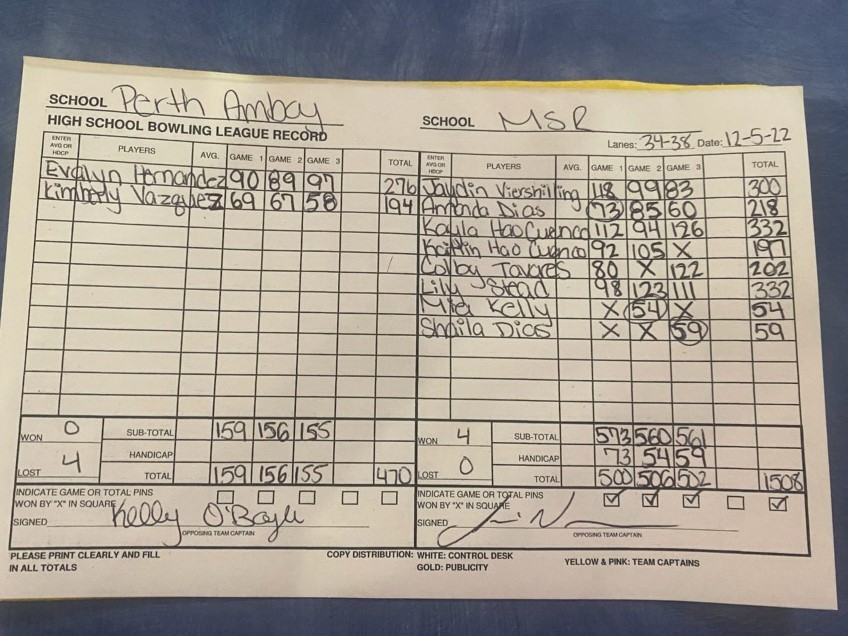 SCHOOL Perth Amboy
HIGH SCHOOL BOWLING LEAGUE RECORD
ENTER AVG OR HDCP PLAYERS AVG. GAME 1 GAME 2 GAME 3 TOTAL
Evalyn Hernandez 90 89 97 276
Kimberly Vazquez 69 67 58 194
WON 0 SUB-TOTAL 159 156 155
HANDICAP
LOST 4 TOTAL 159 156 155 470
INDICATE GAME OR TOTAL PINS
WON BY "X" IN SQUARE
SIGNED Kelly O'Boyle
OPPOSING TEAM CAPTAIN
SCHOOL MSR
Lanes: 34-38 Date: 12-5-22
ENTER AVG OR HDCP PLAYERS AVG. GAME 1 GAME 2 GAME 3 TOTAL
Jaydin Viershilling 118 99 83 300
Amanda Dias 73 85 60 218
Kayla Hao Cuenco 112 94 126 332
Kaitlin Hao Cuenco 92 105 X 197
Colby Tavares 80 X 122 202
Lily Stead 98 123 111 332
Kelly X 54 X 54
Shaila Dias X X 59 59
WON 4 SUB-TOTAL 573 560 561
HANDICAP 73 54 59
LOST 0 TOTAL 500 506 502 1508
INDICATE GAME OR TOTAL PINS
WON BY "X" IN SQUARE
SIGNED
OPPOSING TEAM CAPTAIN
PLEASE PRINT CLEARLY AND FILL
IN ALL TOTALS
COPY DISTRIBUTION: WHITE: CONTROL DESK
GOLD: PUBLICITY
YELLOW & PINK: TEAM CAPTAINS